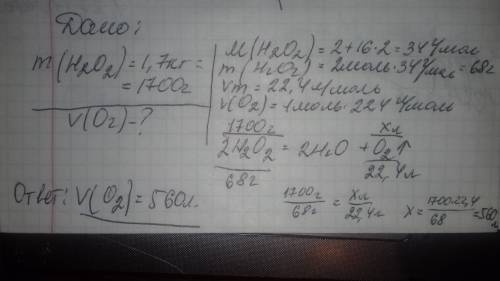 Дано:
m(H2O2)=1,7кг=
=1700г
V(O2)-?
M(H2O2)=2+16·2=34г/моль
m(H2O2)=2моль·34г/моль=68г
Vm=22,4л/моль
V(O2)=1моль·22,4л/моль
1700г xл
2H2O2=2H2O+O2↑
68г 22,4л
1700г/68г=xл/22,4л x=1700·22,4/68=560л
Ответ: V(O2)=560л.